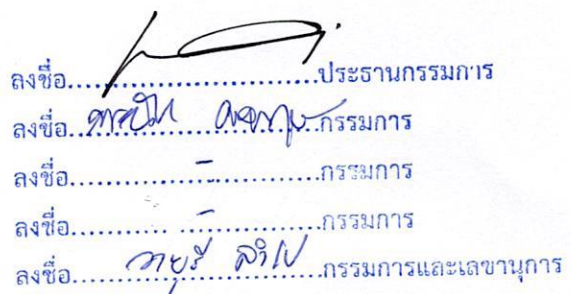 ลงชื่อ................................ประธานกรรมการ
ลงชื่อ................................กรรมการ
ลงชื่อ.............-..............กรรมการ
ลงชื่อ.............-..............กรรมการ
ลงชื่อ......วายุรี......................กรรมการและเลขานุการ